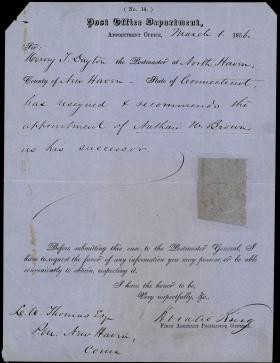 ( No. 14. )
Post Office Department,
APPOINTMENT OFFICE, March 1. 1856.
Sir:
Henry T. Dayton the Postmaster at North Haven,
County of New Haven - State of Connecticut,
has resigned & recommends the
appointment of Nathan W. Brown
as his successor.
Before submitting this case to the Postmaster General, I
have to request the favor of any information you may possess, or be able
conveniently to obtain, respecting it.
I have the honor to be,
Very respectfully, &c.
Horatio King
FIRST ASSISTANT POSTMASTER GENERAL.
L. A. Thomas Esq
New Haven,
Conn